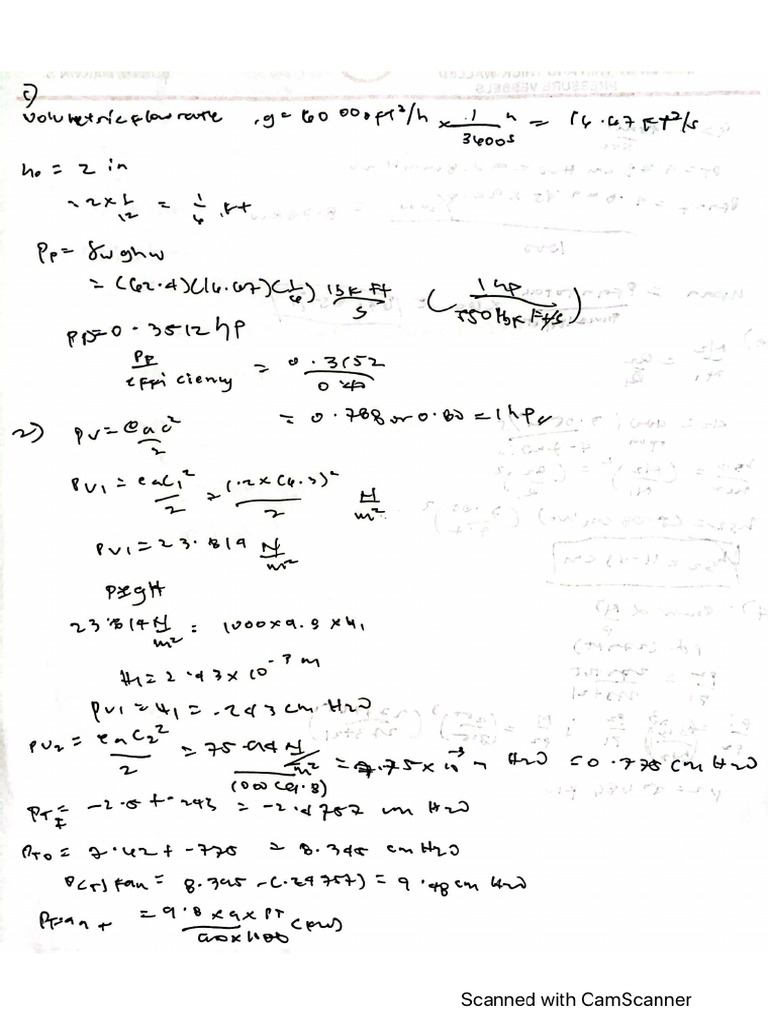 1)
volumetric flow rate , q = 60 000 ft³/h × 1 h / 3600s = 16.67 ft³/s
ho = 2 in
2 × 1/12 = 1/6 ft
Pp = γw q hw
= (62.4)(16.67)(1/6) lbf ft / s ( 1 hp / 550 lbf ft/s )
Pp = 0.3512 hp
Pp / efficiency = 0.3152 / 0.40
= 0.788 or 0.80 = 1 hp
2) Pv = ρa c² / 2
Pv1 = ρa C1² / 2 = 1.2 × (6.3)² / 2 N/m²
Pv1 = 23.814 N/m²
P = ρgH
23.814 N/m² = 1000 × 9.8 × H1
H1 = 2.43 × 10⁻³ m
Pv1 = H1 = .243 cm H2O
Pv2 = ρa C2² / 2 = 75.94 N/m² / 1000(9.8) = 7.75 × 10⁻³ m H2O = 0.775 cm H2O
= -2.4757 cm H2O
PTo = 7.62 + .775 = 8.395 cm H2O
fan = 8.395 - (.24757) = 9.48 cm H2O
= 9.8 × q × PT (kw)
Scanned with CamScanner